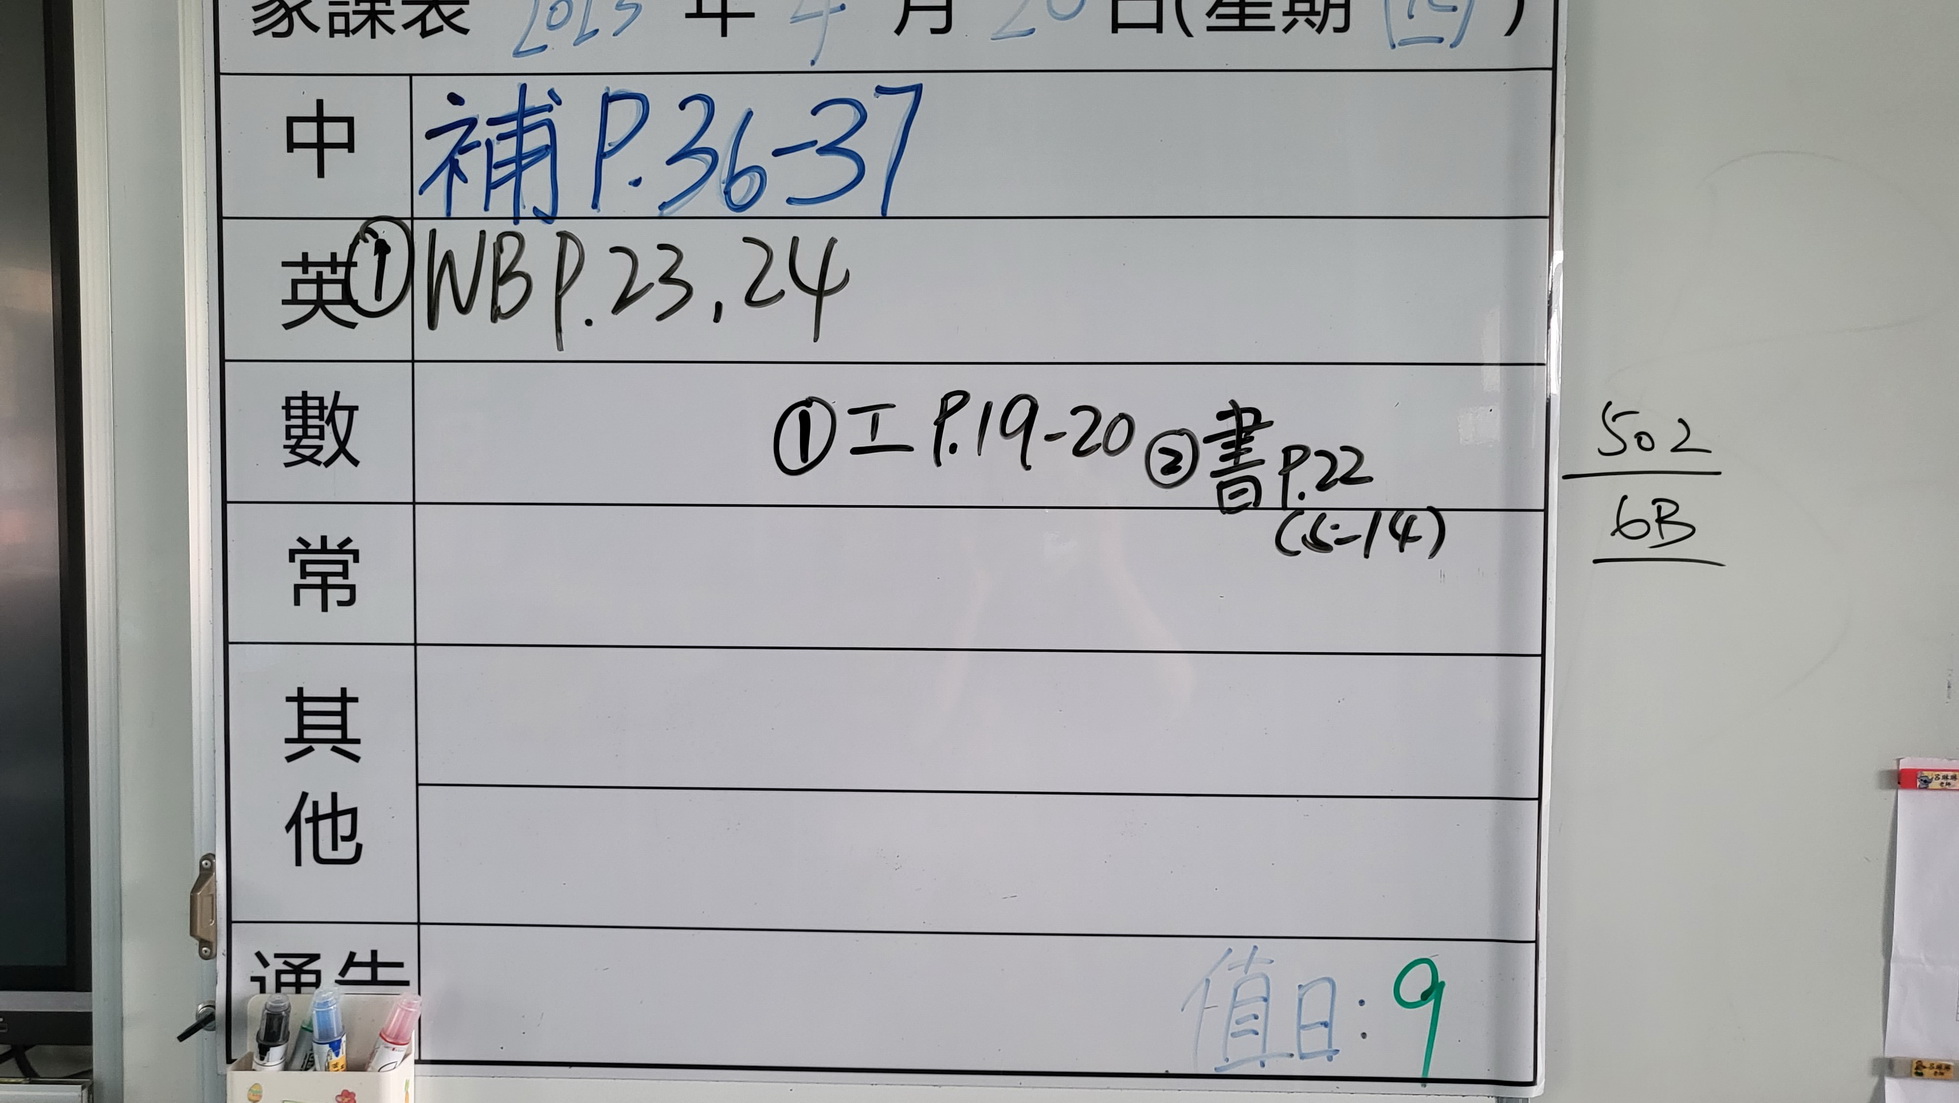 家課表 2023 年 4 月 20 日(星期 四)
中 補 P.36-37
英 ① WB P.23,24
數 ① 工 P.19-20 ② 書 P.22
(5-14)
常
其他
通告
值日: 9
502
6B